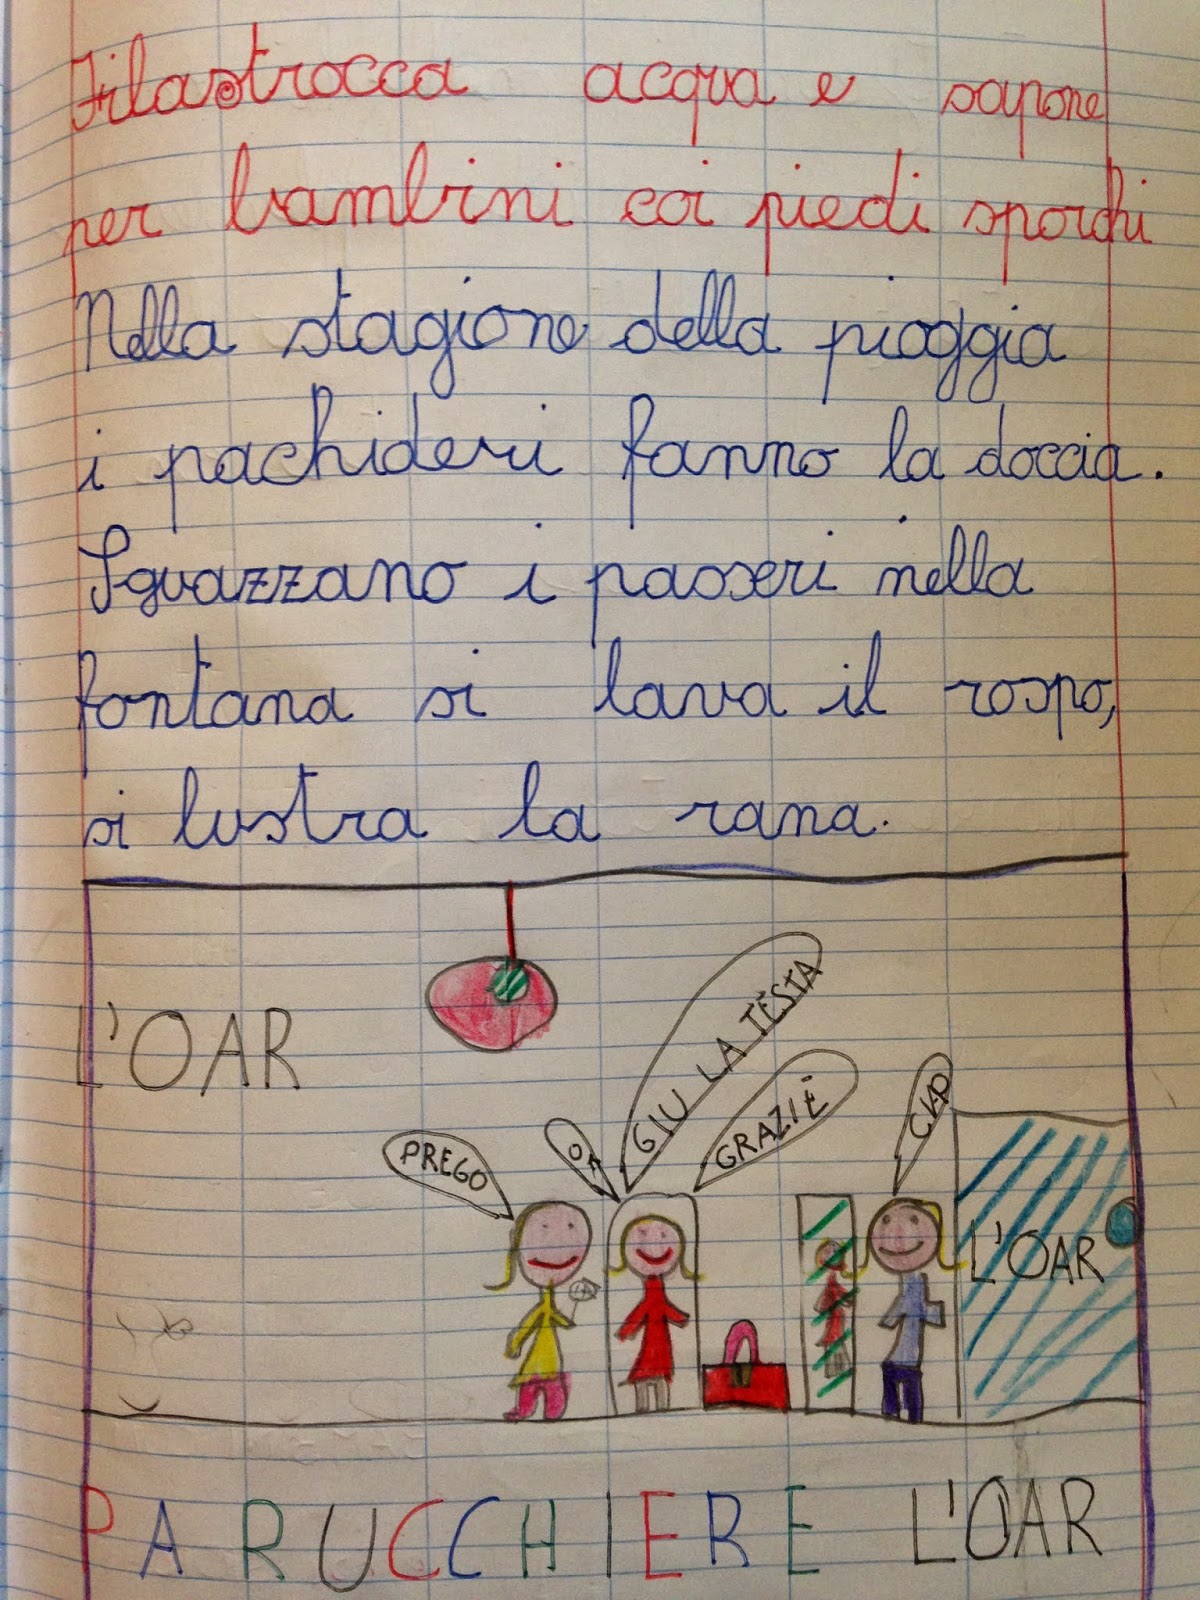 Filastrocca acqua e sapone
per bambini coi piedi sporchi
Nella stagione della pioggia
i pachideri fanno la doccia.
Sguazzano i passeri nella
fontana si lava il rospo,
si lustra la rana.
L'OAR
PREGO
GIU LA TESTA
GRAZIE
L'OAR
PARUCCHIERE L'OAR